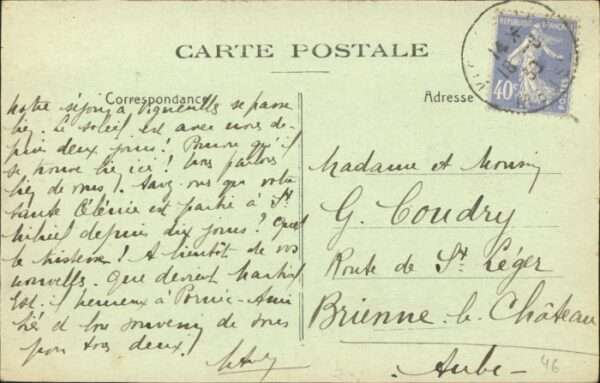 CARTE POSTALE
Correspondance
Adresse
RÉPUBLIQUE FRANÇAISE
40c
POSTES
Notre séjour à Vigneulles se passe
bien. Le soleil est avec nous de-
puis deux jours! Pourvu qu'il
se trouve bien ici! Nous parlons
bien de vous! Savez-vous que votre
tante Célénie est partie à St
Mihiel depuis dix jours? Quelle
tristesse! A bientôt de vos
nouvelles. Que devient
Est-il heureux à Pornic - Ami
tiés et bon souvenir de nous
pour tous deux!
Madame et Monsieur
G. Coudry
Route de St Léger
Brienne-le-Château
Aube-
46